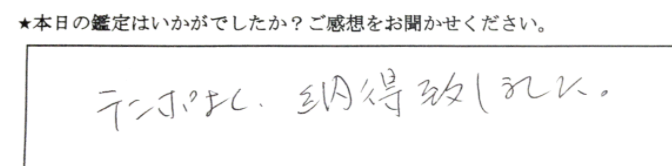 ★本日の鑑定はいかがでしたか？ご感想をお聞かせください。
テンポよく、納得致しました。